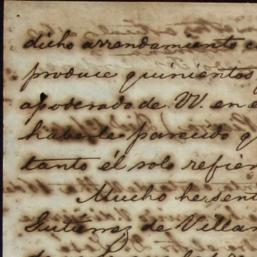 dicho arrendamiento c
produce quinientos
apoderado de VV. en e
haberle parecido q
tanto él solo refier
Mucho he sent
Gutierrez de Villan